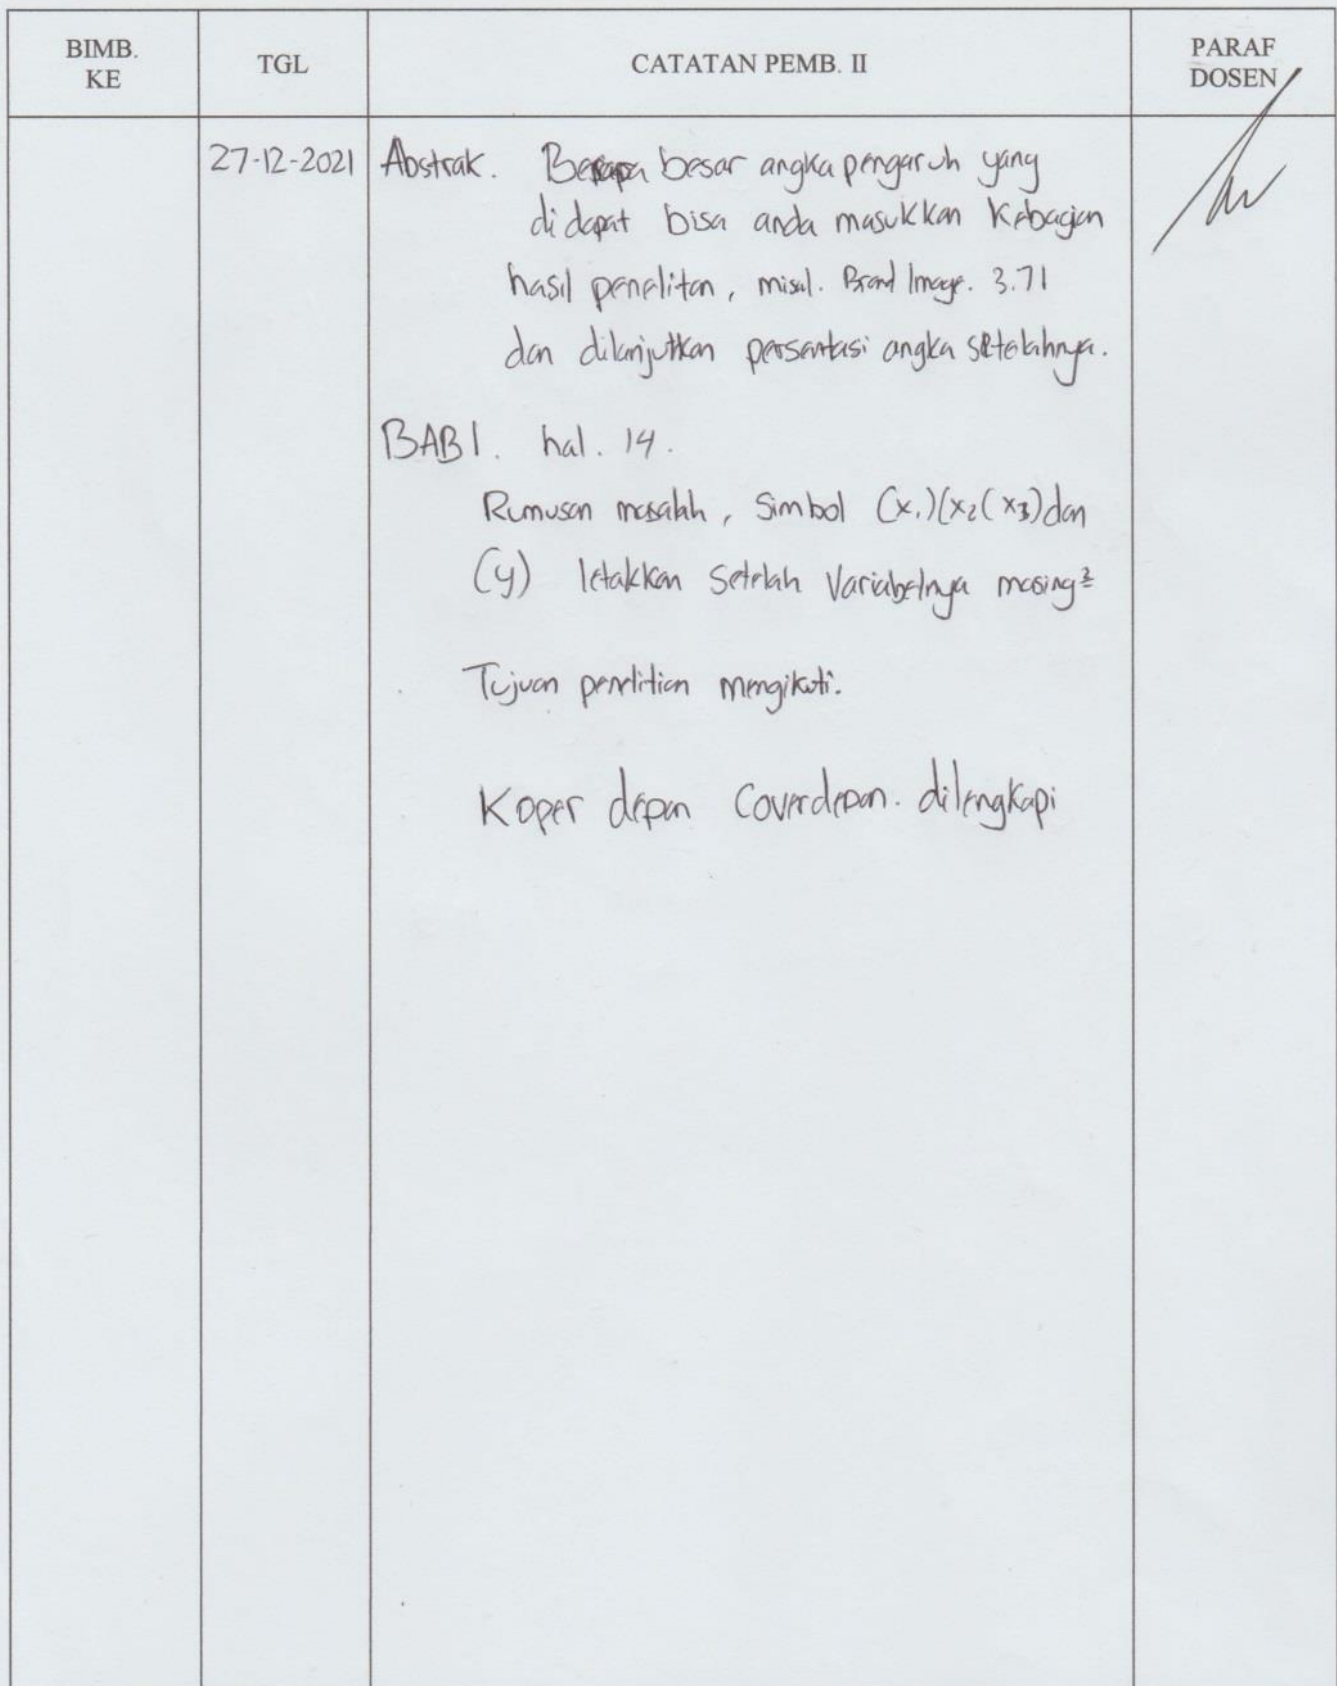 BIMB. KE
TGL
CATATAN PEMB. II
PARAF DOSEN
27-12-2021
Abstrak. Berapa besar angka pengaruh yang
didapat bisa anda masukkan Kebagian
hasil penelitan, misal. Brand Image. 3.71
dan dilanjutkan persentasi angka setelahnya.
BAB I. hal. 14.
Rumusan masalah, Simbol (x1)(x2(x3) dan
(y) letakkan setelah Variabelnya masing2
Tujuan penelitian mengikuti.
Koper depan Coverdepan. dilengkapi